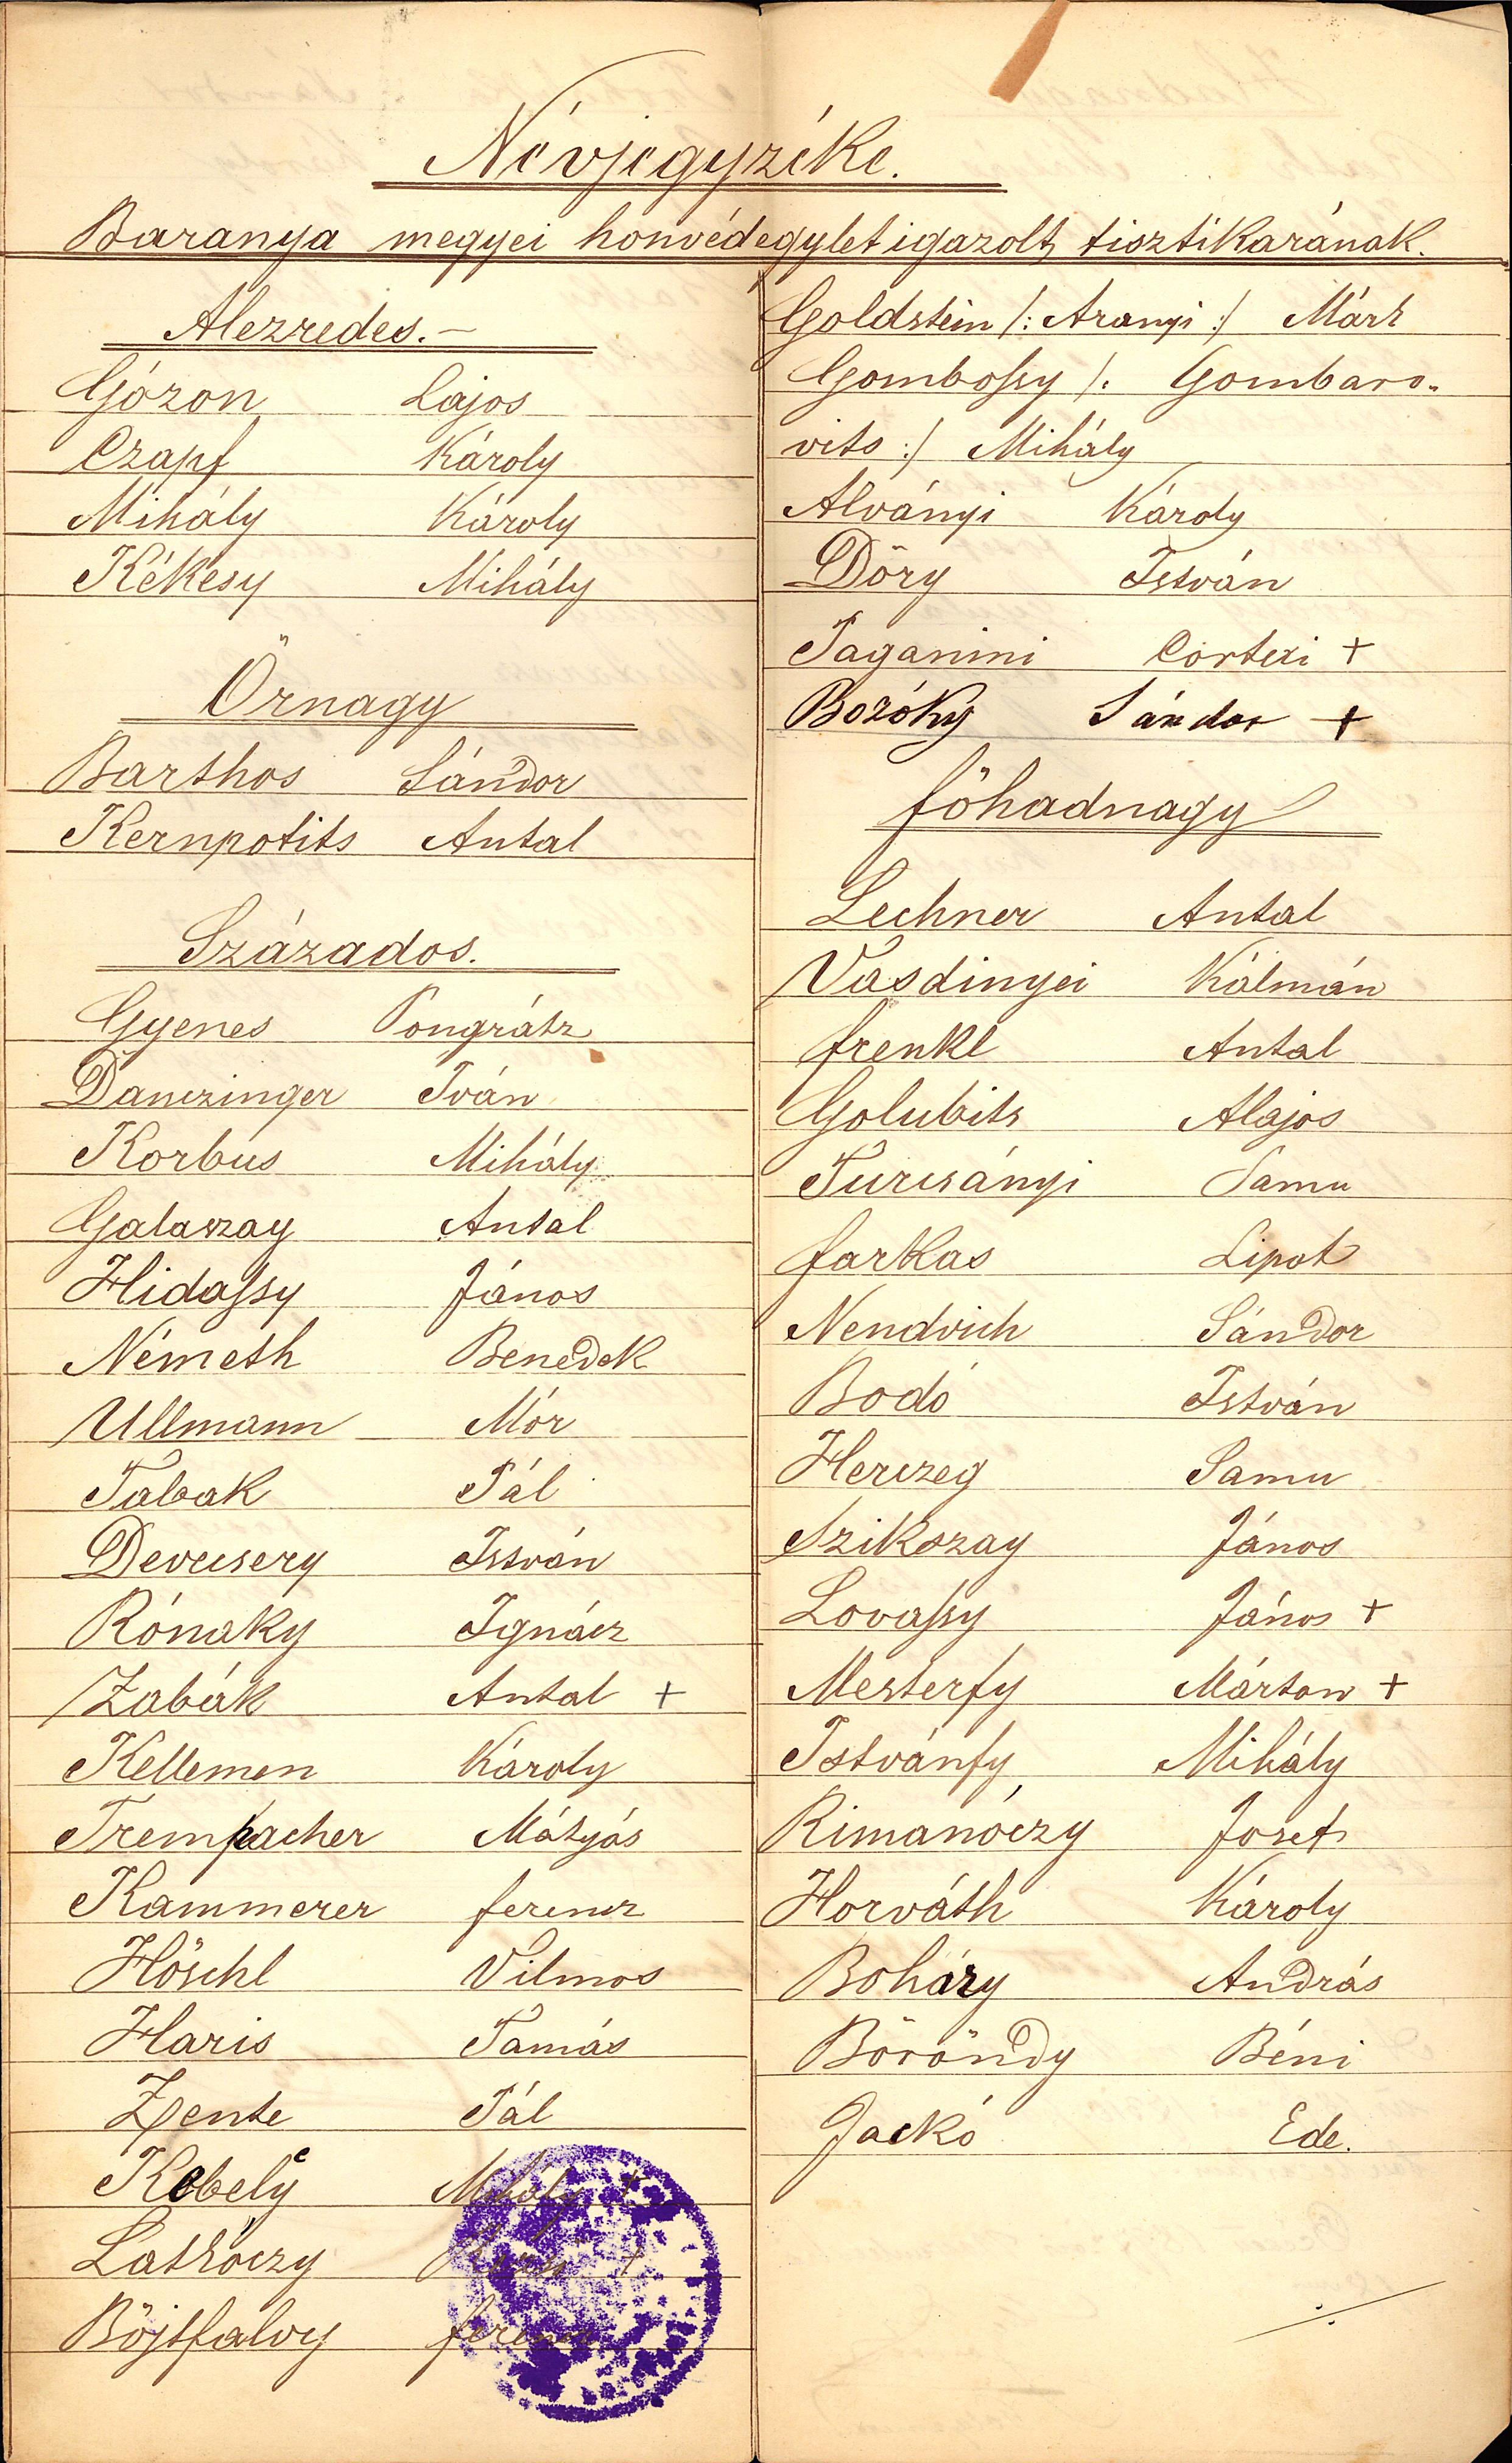 Névjegyzéke.
Baranya megyei honvédegylet igazolt tisztikarának.
Alezredes.-
Gózon Lajos
Czapf Károly
Mihály Károly
Kékesy Mihály
Örnagy
Barthos Sándor
Kernpotits Antal
Százados.
Gyenes Pongrátz
Danczinger Iván
Korbus Mihály
Galaszay Antal
Hidassy János
Németh Benedek
Ullmann Mór
Tabak Pál
Devecsery István
Rónaky Ignácz
Zabák Antal +
Kellemen Károly
Trempacher Mátyás
Kammerer ferencz
Höschl Vilmos
Haris Tamás
Zsente Pál
Kebely Mihály +
Latkóczy +
Böjtfalvy ferencz
Goldstein /: Aranyi :/ Márk
Gombossy /: Gombaro-
vits :/ Mihály
Alványi Károly
Döry István
Paganini Cortezi +
Bozóky Sándor +
főhadnagy
Lechner Antal
Vasdinyei Kálmán
frenkl Antal
Golubits Alajos
Turcsányi Samu
farkas Lipot
Nendvich Sándor
Bodó István
Herczeg Samu
Szikszay János
Lovassy János +
Mesterfy Márton +
Istvánfy Mihály
Rimanóczy Josef
Horváth Károly
Boháry András
Böröndy Béni
Jackó Ede.